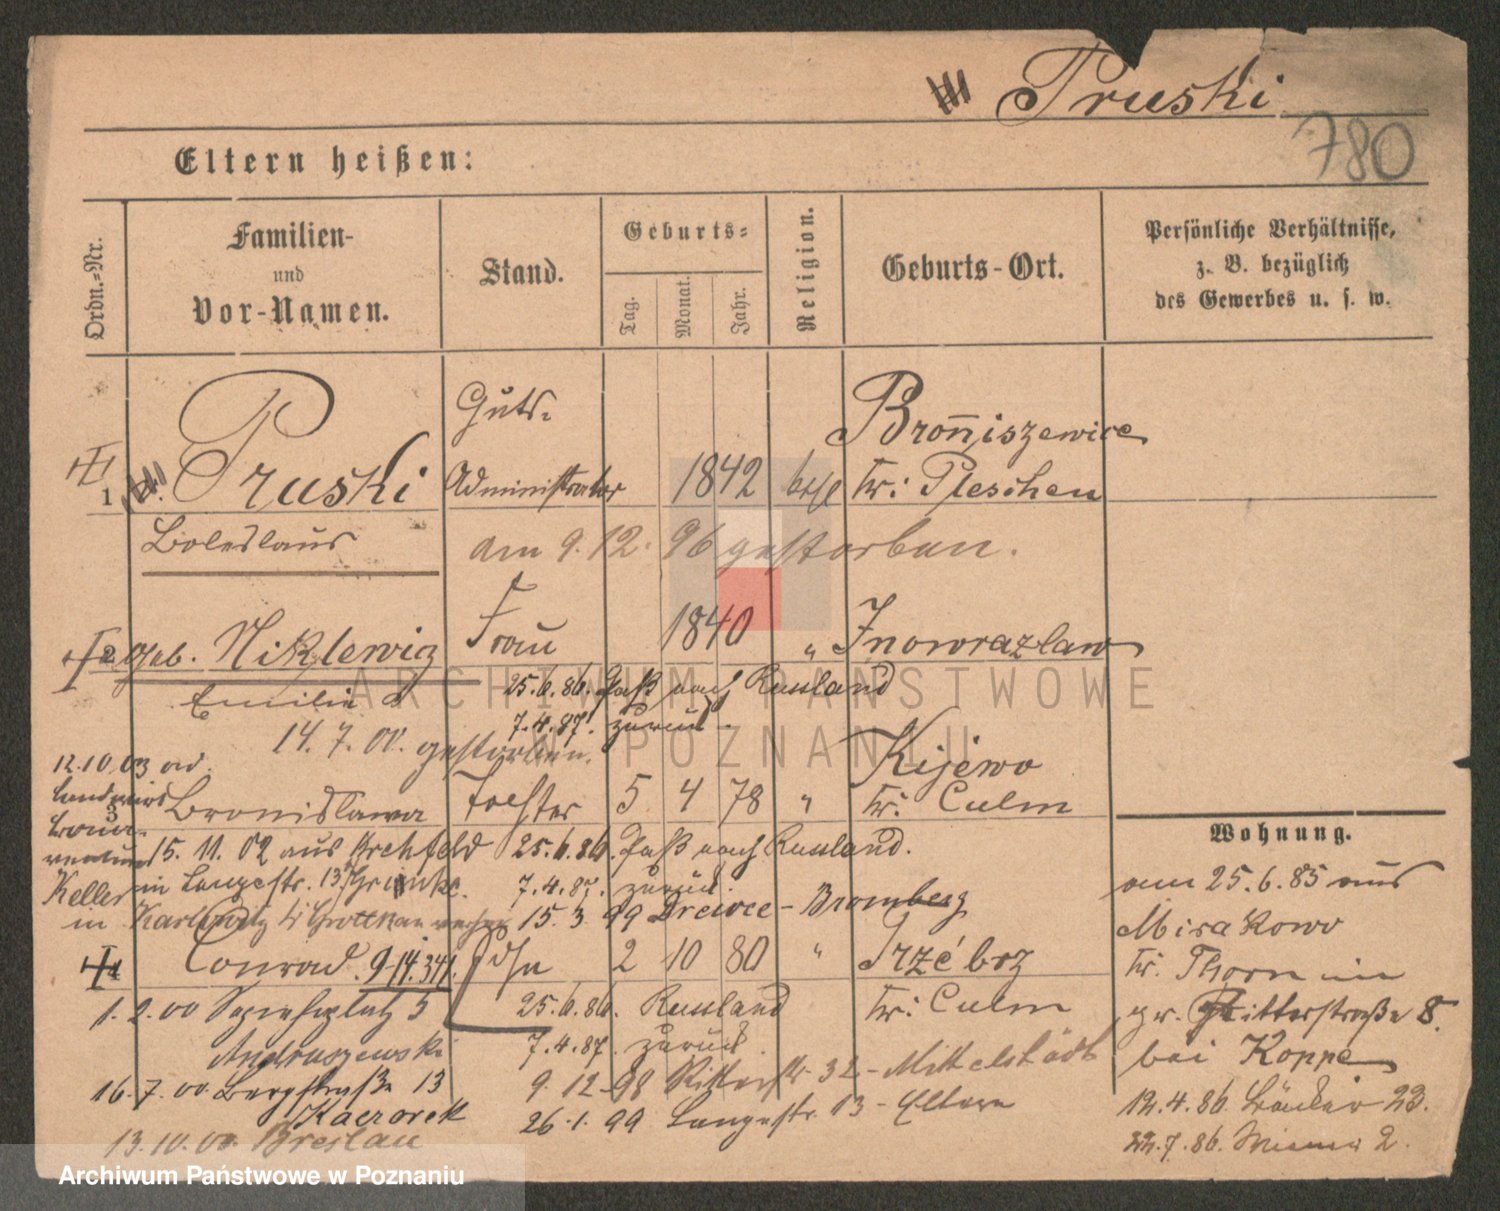 Pruski
780
Eltern heißen:
Ordn.-Nr.
Familien-
und
Vor-Namen.
Stand.
Geburts-
Tag.
Monat.
Jahr.
Religion.
Geburts-Ort.
Persönliche Verhältnisse,
z. B. bezüglich
des Gewerbes u. s. w.
1
Pruski
Boleslaus
Guts-
Administrator
1842
kath
Broniszewice
Kr: Pleschen
am 9.12.96 gestorben.
2 geb. Niklewicz
Emilia
Frau
1840
" Inowrazlaw
25.6.86. Paß nach Russland
7.4.87. zurück.
14.7.00. gestorben.
12.10.03 ad.
3
Bronislawa
Tochter
5 4 78
"
Kijewo
Kr: Culm
15.11.02 aus
25.6.86. Paß nach Russland.
Keller
in Langestr. 13
7.4.87. zurück.
in
15.3.99 - Bromberg
4
Conrad. 9.14.341.
Sohn
2 10 80
"
Trzébcz
Kr: Culm
1.2.00 Sapiehaplatz 5
Andruszewski
25.6.86. Russland
7.4.87. zurück.
16.7.00. Bergstraße 13
Kaczorek
9.12.98 Ritterstr. 32 - Mittelstädt
26.1.99 Langestr. 13 - Eltern
13.10.00. Breslau
Wohnung.
am 25.6.85 aus
Mirakowo
Kr. Thorn in
gr. Ritterstraße 8.
bei Koppe
12.4.86. Bäcker 23.
22.7.86. Wiener 2.
ARCHIWUM PAŃSTWOWE
W POZNANIU
Archiwum Państwowe w Poznaniu